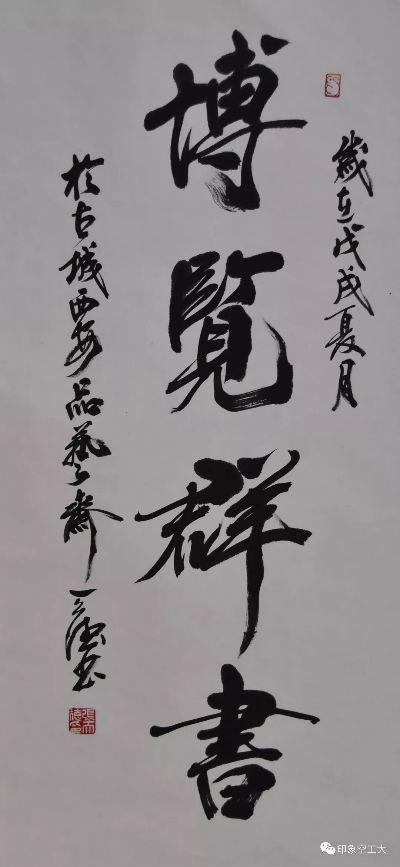 歲在戊戌夏月
博覽群書
於古城西安品藝齋
印象空工大